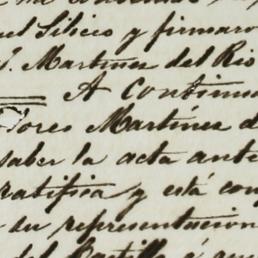 el Silicio y firmaro
Martinez del Rio
A continu
Martinez d
saber la acta ante
ratifica y está con
en representacion
del Castillo á